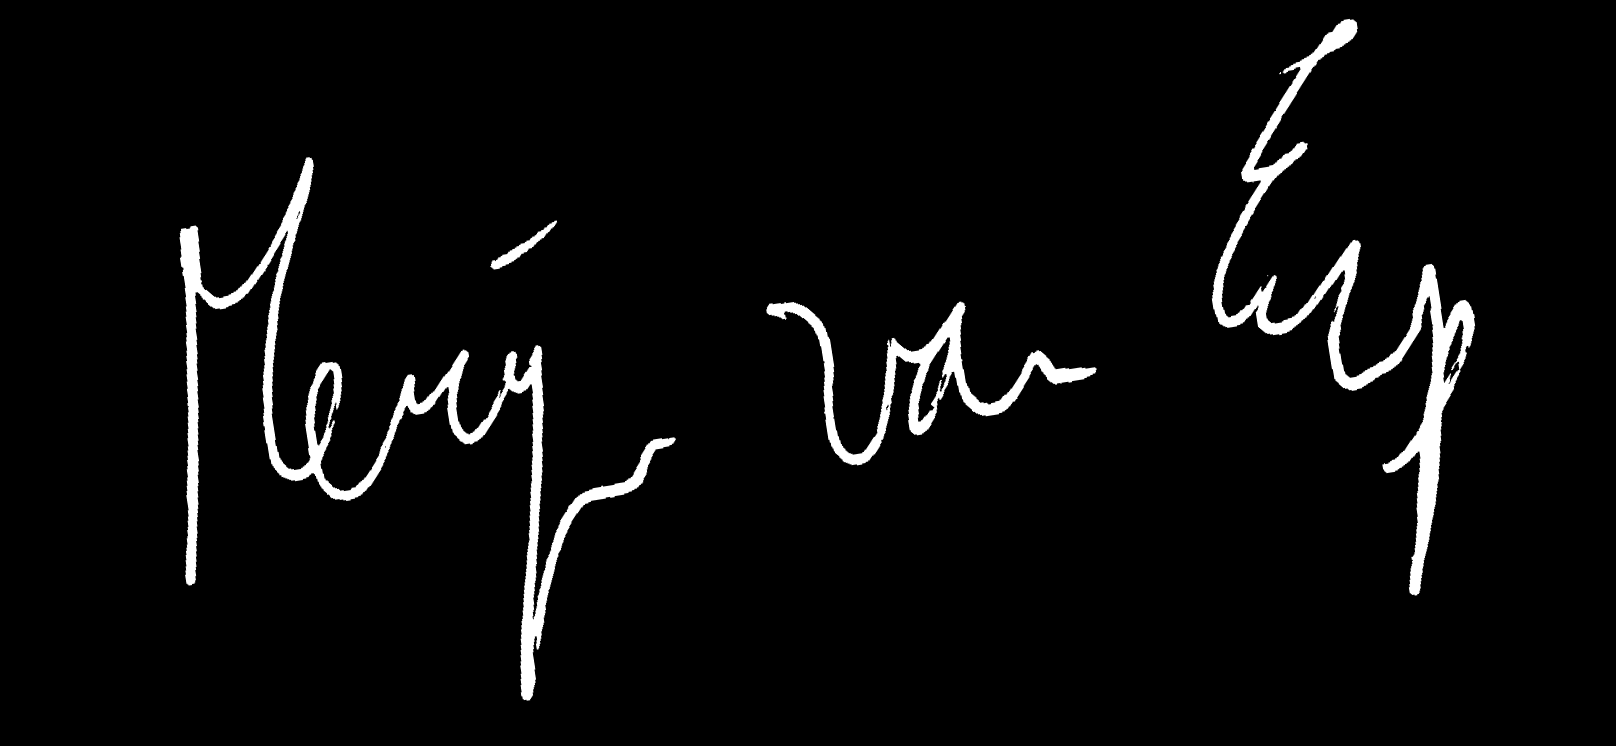 Merij van Erp